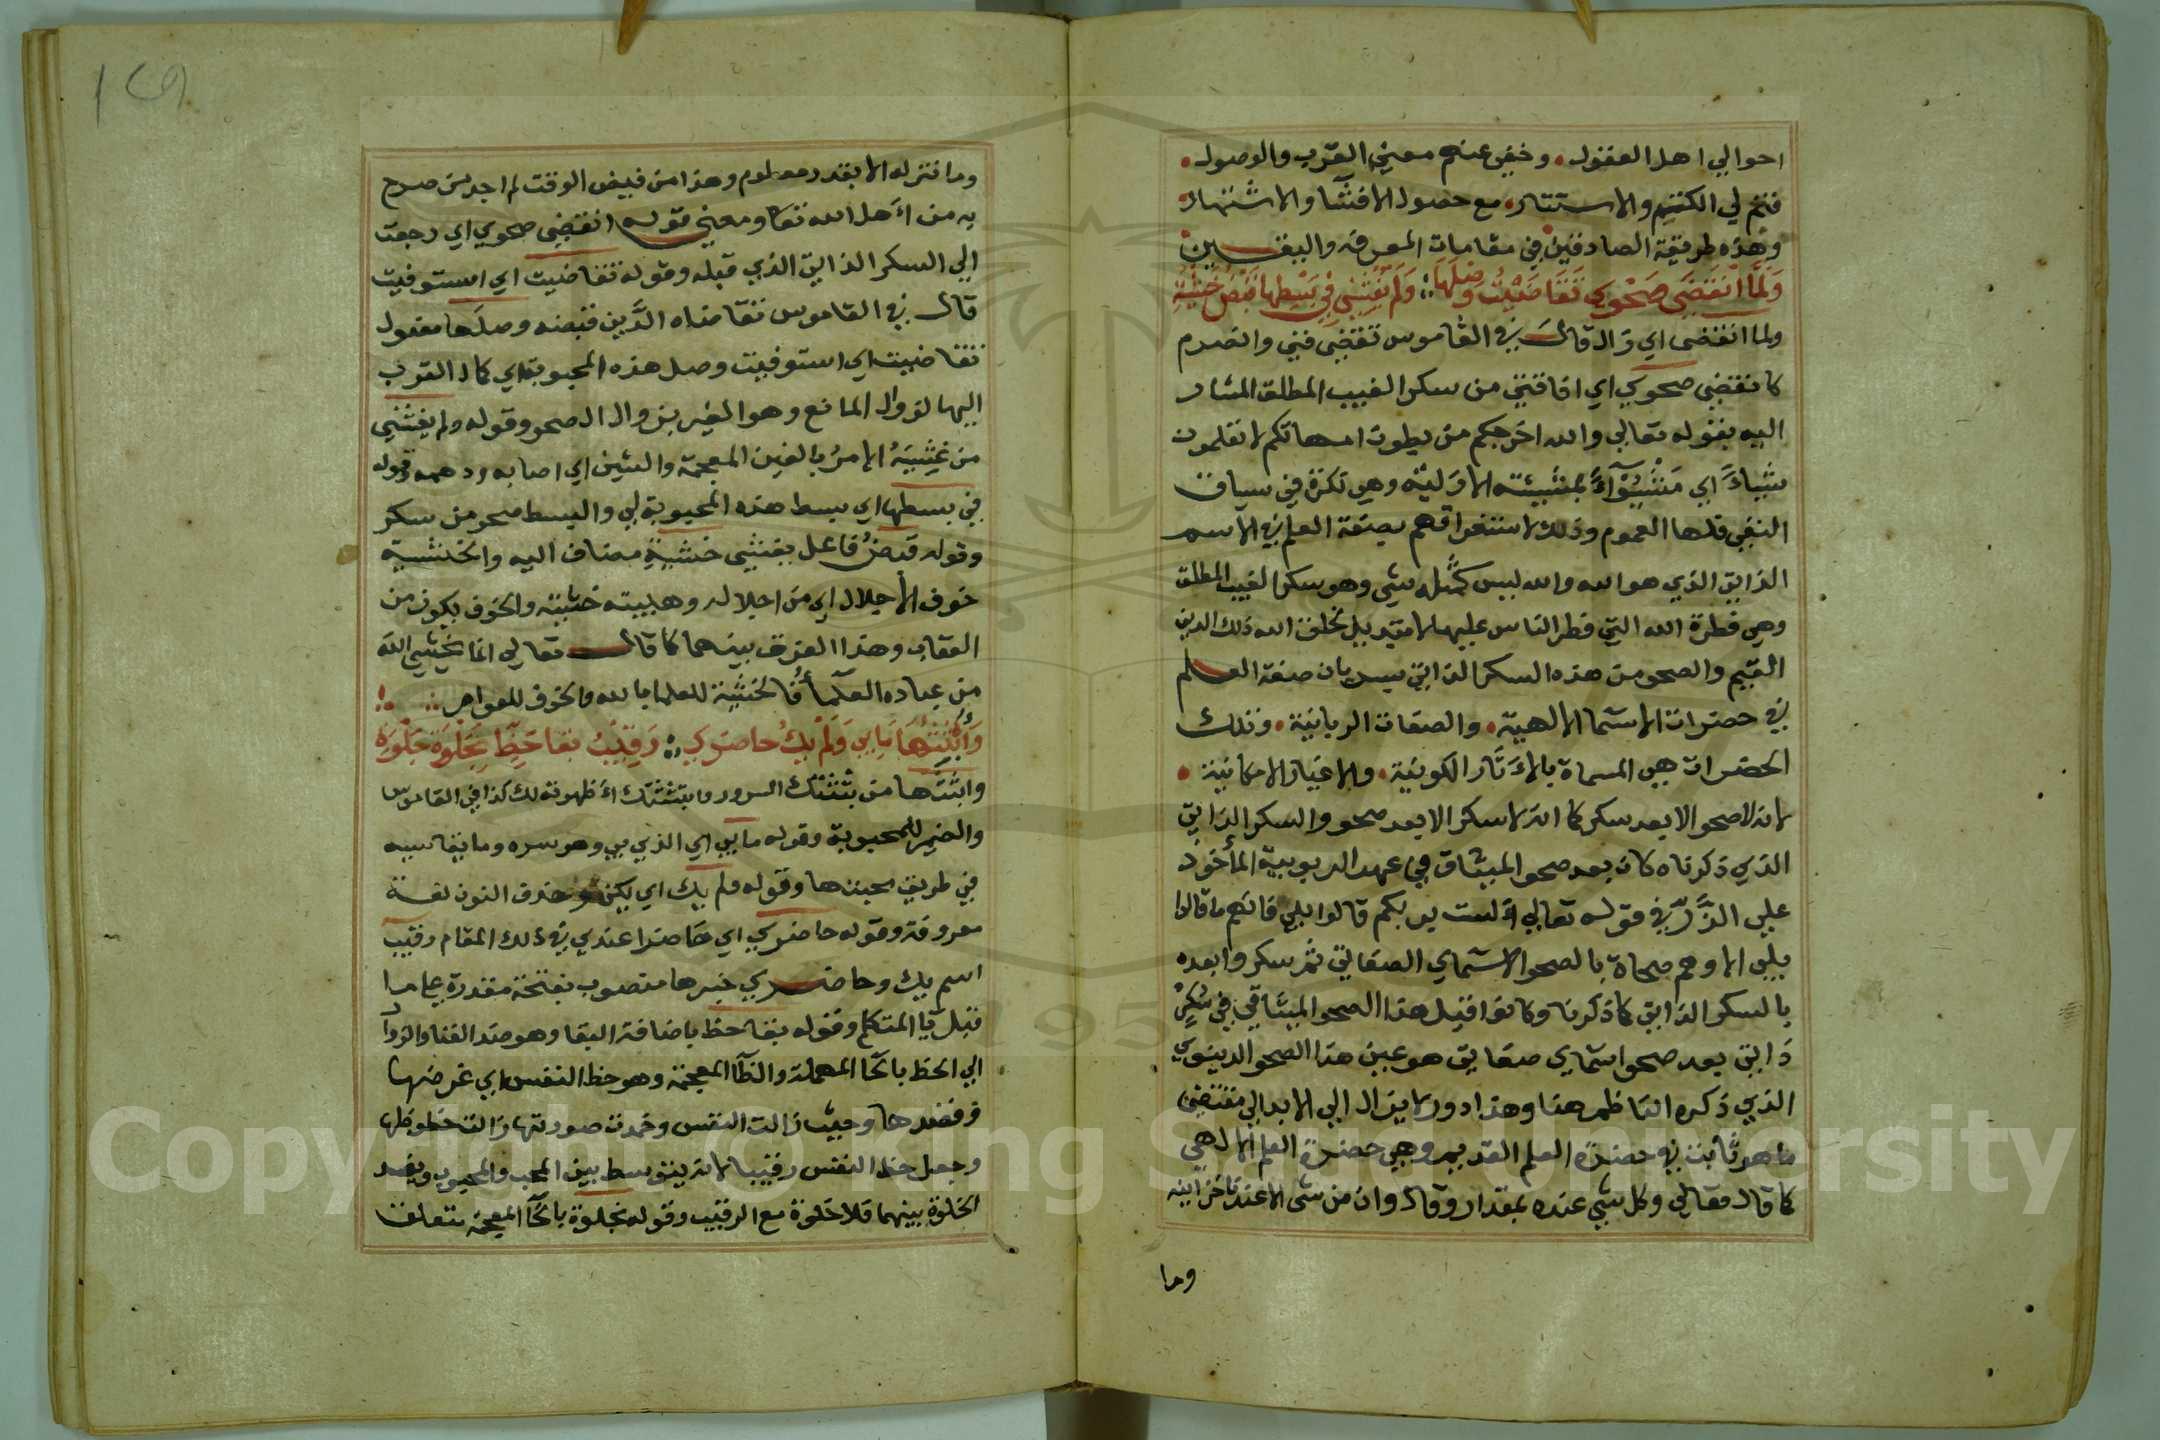 احوالي اهل العقول. وخفي عنهم معني القرب والوصول.
فتم لي الكتم والاستتار. مع حصول الافشا والاشتهار.
وهذه طريقة الصادقين في مقامات المعرفة واليقين
وَلَمَّا انْقَضَى صَحْوِي تَقَاضَيْتُ وَصْلَهَا ؛ وَلَمْ يَغْشَنِي فِي بَسْطِهَا قَبْضُ خَشْيَةِ
ولما انقضى اي زال قال في القاموس تقضى فني وانصرم
كانقضي صحوي اي افاقتي من سكر الغيب المطلق المشار
اليه بقوله تعالي والله اخرجكم من بطون امهاتكم لا تعلمون
شياء اي مَشْيُوْآءً بمشيئته الازلية وهي نكرة في سياق
النفي فلها العموم وذلك لاستغراقهم بصفة العلم في الاسم
الذاتي الذي هو الله والله ليس كمثله شي وهو سكر الغيب المطلق
وهي فطرة الله التي فطر الناس عليها لا تبديل لخلق الله ذلك الدين
القيم والصحو من هذه السكر الذاتي بسريان صفة العلم
في حضرات الاسما الالهية. والصفات الربانية. وتلك
الحضرات هي المسماة بالاثار الكونية. والاغيار الامكانية.
لانه لا صحو الا بعد سكر كما انه لا سكر الا بعد صحو والسكر الذاتي
الذي ذكرناه كان بعد صحو الميثاق في عهد الربوبية المأخوذ
علي الذَّرِّ في قوله تعالي الست بربكم قالوا بلي فانهم ما قالوا
بلي الا وهم صحاة بالصحو الاسماي الصفاتي ثم سكروا بعده
بالسكر الذاتي كما ذكرنا وكانوا قبل هذا الصحو الميثاقي في سُكْرٍ
ذاتي بعد صحو اسماي صفاتي هو عين هذا الصحو الدنيوي
الذي ذكره الناظم هنا وهذا دور لا يزال الي الابد الي مقتضي
ما هو ثابت في حضرة العلم القديم وهي حضرة العلم الالهي
كما قال تعالي وكل شي عنده بمقدار وقال وان من شى الا عندنا خزاينه
وما
١٢٩
وما ننزله الا بقدر معلوم وهذا من فيض الوقت لم اجد من صرح
به من اهل الله تعا ومعني قوله انقضى صحوي اي رجعت
الي السكر الذاتي الذي قبله وقوله تقاضيت اي استوفيت
قال في القاموس تقاضاه الدَّين قبضه وصلَها مفعول
تقاضيت اي استوفيت وصل هذه المحبوبة اي كمال القرب
اليها لزوال المانع وهو الغير بزوال الصحو وقوله ولم يغشني
من غَشِيَهُ الامرُ بالغين المعجمة والشين اي اصابه ودهمه وقوله
في بسطها اي بسط هذه المحبوبة لي والبسط صحو من سكر
وقوله قبضُ فاعل يغشي خشيةِ مضاف اليه والخشية
خوف الاجلال اي من اجلاله وهيبته خشيته والخوف يكون من
العقاب وهذا الفرق بينهما كما قال تعالي انما يخشي الله
من عباده العلماء فالخشية للعلما بالله والخوف للعوام
وَأَبْثَثْتُهَا مَا بِي وَلَمْ يَكُ حَاضِرِي ؛ رَقِيْبُ بَقَا حَظٍّ بِخَلْوَةِ جَلْوَةِ
وابثثتها من بَثَثْتُك السر وما ابثثتك اي اظهرته لك كذا في القاموس
والضمير للمحبوبة وقوله ما بي اي الذي بي وهو سره وما يقاسيه
في طريق محبتها وقوله ولم يك اي يكن وحذف النون لغة
معروفة وقوله حاضري اي حاضرا عندي في ذلك المقام رقيب
اسم يك وحاضري خبرها منصوب بفتحة مقدرة علي ما
قبل يا المتكلم وقوله بقا حظ باضافة البقا وهو ضد الفنا والزوال
الي الحظ بالحا المهملة والظا المعجمة وهو حظ النفس اي غرضها
وقصدها وحيث زالت النفس وخمدت صورتها زالت حظوظها
وجعل حظ النفس رقيبا لانه يتوسط بين المحب والمحبوب ويفسد
الخلوة بينهما فلا خلوة مع الرقيب وقوله بخلوة بالخا المعجمة متعلق
Copyright © King Saud University
1957